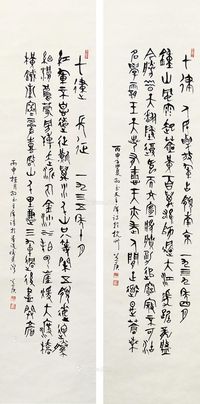 七律 人民解放軍占領南京 一九四九年四月
鍾山風雨起蒼黃百萬雄師過大江虎踞龍盤
今勝昔天翻地覆慨而慷宜將剩勇追窮寇不可沽
名學霸王天若有情天亦老人間正道是滄桑
七律 長征 一九三五年十月
紅軍不怕遠征難萬水千山只等閒五嶺逶迤騰
細浪烏蒙磅礴走泥丸金沙水拍雲崖暖大渡橋
橫鐵索寒更喜岷山千里雪三軍過後盡開顏